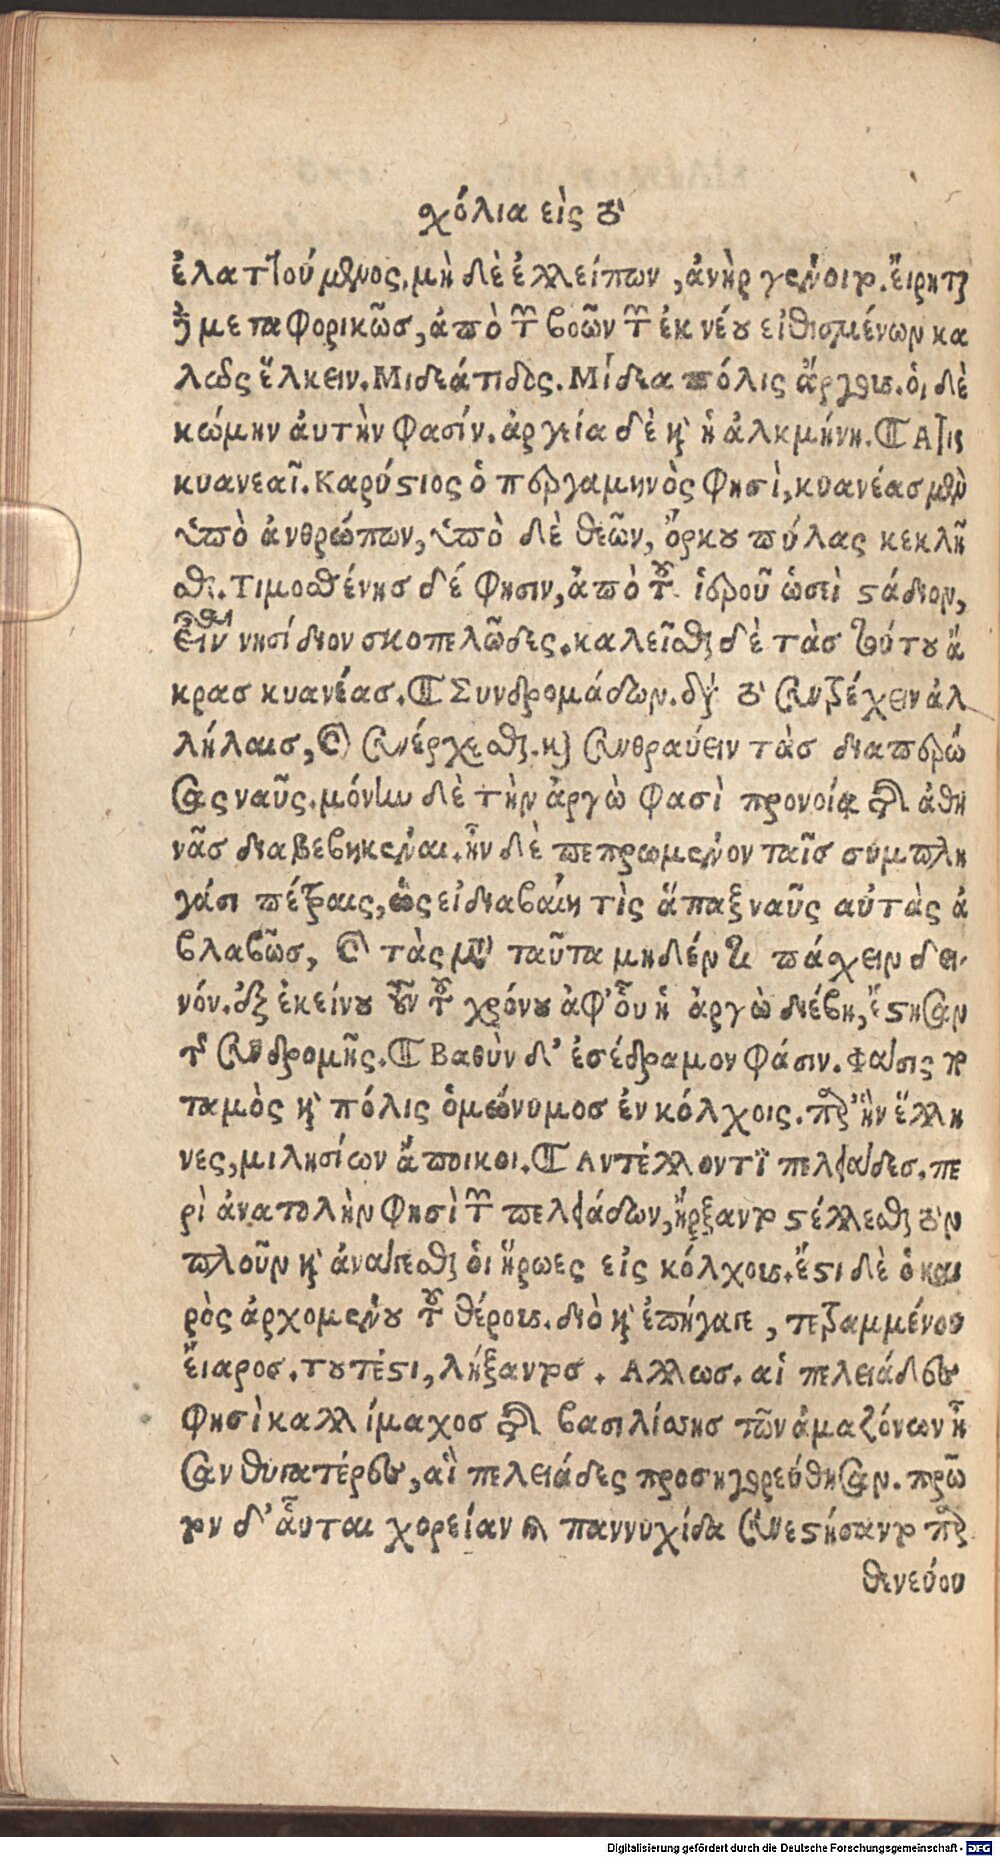 χόλια εἰς τὸ
ἐλαττούμενος. μὴ δὲ ἐλλείπων, ἀνὴρ γένοιτο. εἴρηται
δὲ μεταφορικῶσ, ἀπὸ τῶν βοῶν τῶν ἐκ νέου εἰθισμένων κα
λῶς ἕλκειν. Μιδεάτιδος. Μίδεα πόλις ἄργους. οἱ δὲ
κώμην ἀυτὴν φασίν. ἀργεία δὲ καὶ ἡ ἀλκμήνη. ¶ Αἵτις
κυανεαῖ. Καρύστιος ὁ περγαμηνὸς φησὶ, κυανέασ μὲν
ὑπὸ ἀνθρώπων, ὑπὸ δὲ θεῶν, ὅρκου πύλας κεκλῆ
σθαι. Τιμοσθένησ δέ φησιν, ἀπὸ τοῦ ἱεροῦ ὡσεὶ στάδιον,
ἐστὶν νησίδιον σκοπελῶδες. καλεῖσθαι δὲ τὰσ τούτου ἄ
κρασ κυανέας. ¶ Συνδρομάδων. διὰ τὸ συντρέχειν ἀλ
λήλαισ, καὶ συνέρχεσθαι. καὶ συνθραύειν τὰσ διαπερώ
σας ναῦς. μόνην δὲ τὴν ἀργὼ φασὶ προνοίᾳ τῆς ἀθη
νᾶσ διαβεβηκέναι. ἦν δὲ πεπρωμένον ταῖσ συμπλη
γάσι πέτραις, ὡς εἰ διαβαίη τὶς ἅπαξ ναῦς αὐτὰς ἀ
βλαβῶσ, καὶ τὰς μετὰ ταῦτα μηδέν τι πάσχειν δει-
νόν. ἐξ ἐκείνου οὖν τοῦ χρόνου ἀφ' οὗ ἡ ἀργὼ διέβη, ἔστησαν
τῆς συνδρομῆς. ¶ Βαθὺν δ' ἐσέδραμον φάσιν. Φάσις πο
ταμὸς καὶ πόλις ὁμώνυμοσ ἐν κόλχοις. παρ' ἣν ἕλλη
νες, μιλησίων ἄποικοι. ¶ Αντέλλοντι πελειάδεσ. πε
ρὶ ἀνατολὴν φησὶ τῶν πελειάδων, ἤρξαντο στέλλεσθαι τὸν
πλοῦν καὶ ἀνάγεσθαι ὁι ἥρωες εἰς κόλχους. ἔστι δὲ ὁ και
ρὸς ἀρχομένου τοῦ θέρους. διὸ καὶ ἐπήγαγε, τετραμμένου
εἴαρος. τουτέστι, λήξαντοσ. Αλλωσ. αἱ πελειάδες
φησὶ καλλίμαχοσ τῆς βασιλίσσησ τῶν ἀμαζόνων ἦ
σαν θυγατέρες, αἳ πελειάδες προσηγορεύθησαν. πρῶ
τον δ' αὗται χορείαν καὶ παννυχίδα συνεστήσαντο παρ
θενεύου
Digitalisierung gefördert durch die Deutsche Forschungsgemeinschaft - DFG